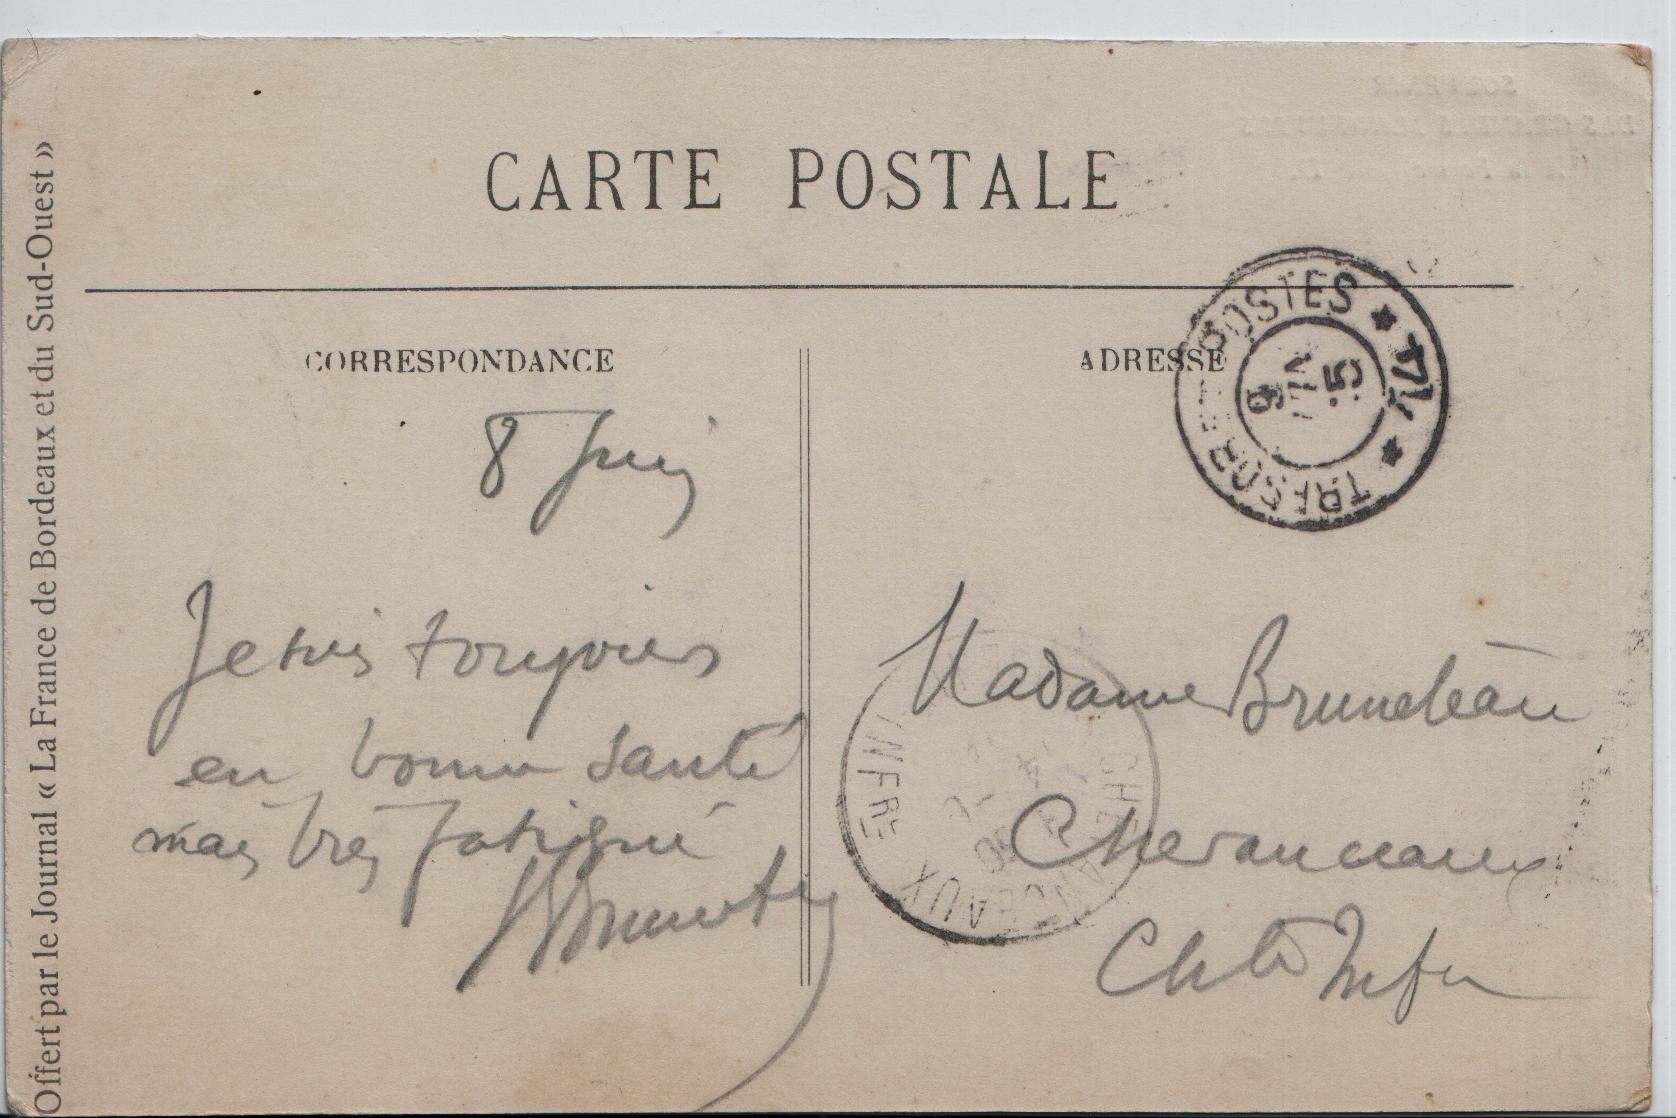 CARTE POSTALE
Offert par le Journal « La France de Bordeaux et du Sud-Ouest »
CORRESPONDANCE
8 Juin
Je suis toujours
en bonne santé
mais très fatigué
ADRESSE
TRESOR ET POSTES * 174 *
9
JUIN
15
Madame Bruneteau
Chevanceaux
Chte Infre
CHEVANCEAUX
INFRE